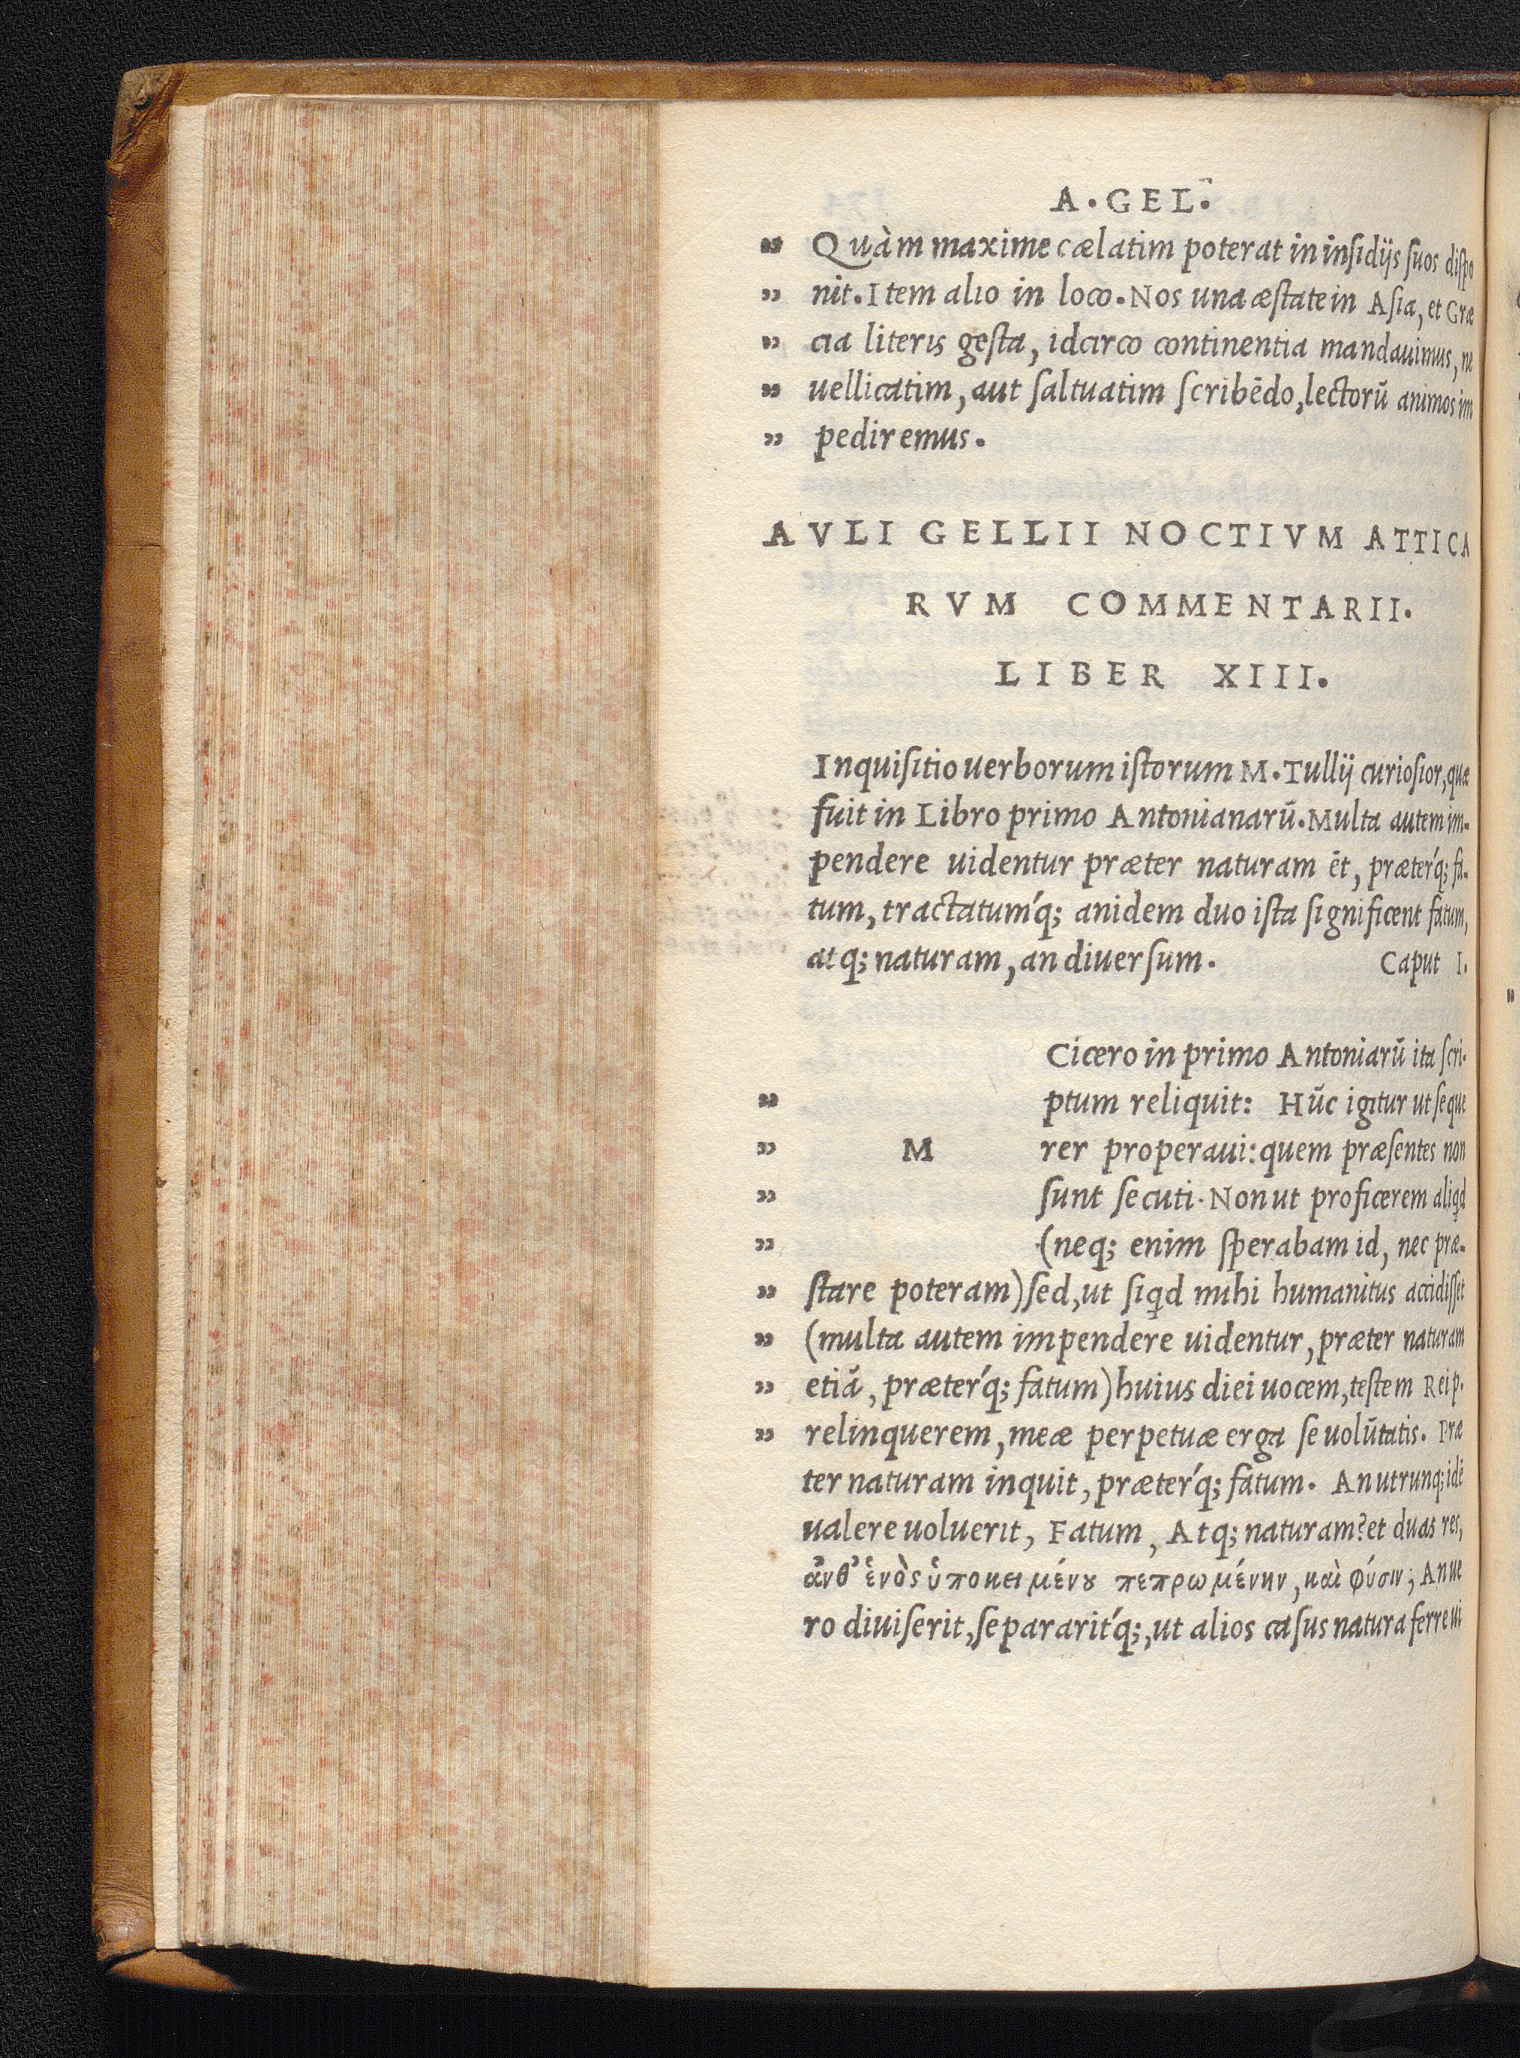 A. GEL.
„ Quàm maxime cælatim poterat in insidijs suos dispo
„ nit. Item alio in loco. Nos una æstate in Asia, et Græ
„ cia literis gesta, idcirco continentia mandauimus, ne
„ uellicatim, aut saltuatim scribēdo, lectorū animos im
„ pediremus.
AVLI GELLII NOCTIVM ATTICA
RVM COMMENTARII.
LIBER XIII.
Inquisitio uerborum istorum M. Tullij curiosior, quæ
fuit in Libro primo Antonianarū. Multa autem im-
pendere uidentur præter naturam ēt, præterq́; fa-
tum, tractatumq́; an idem duo ista significent fatum,
atq; naturam, an diuersum. Caput I.
Cicero in primo Antoniarū ita scri-
„ ptum reliquit: Hūc igitur ut seque
„ M rer properaui: quem præsentes non
„ sunt secuti. Non ut proficerem aliqd
„ (neq; enim sperabam id, nec præ-
„ stare poteram) sed, ut siqd mihi humanitus accidisset
„ (multa autem impendere uidentur, præter naturam
„ etiā, præterq́; fatum) huius diei uocem, testem Reip.
„ relinquerem, meæ perpetuæ erga se uolūtatis. Præ
ter naturam inquit, præterq́; fatum. An utrunq; idē
ualere uoluerit, Fatum, Atq; naturam? et duas res,
ἀνθ’ ἑνὸς ὑποκειμένου πεπρωμένην, καὶ φύσιν; An ue
ro diuiserit, separaritq́;, ut alios casus natura ferre ui